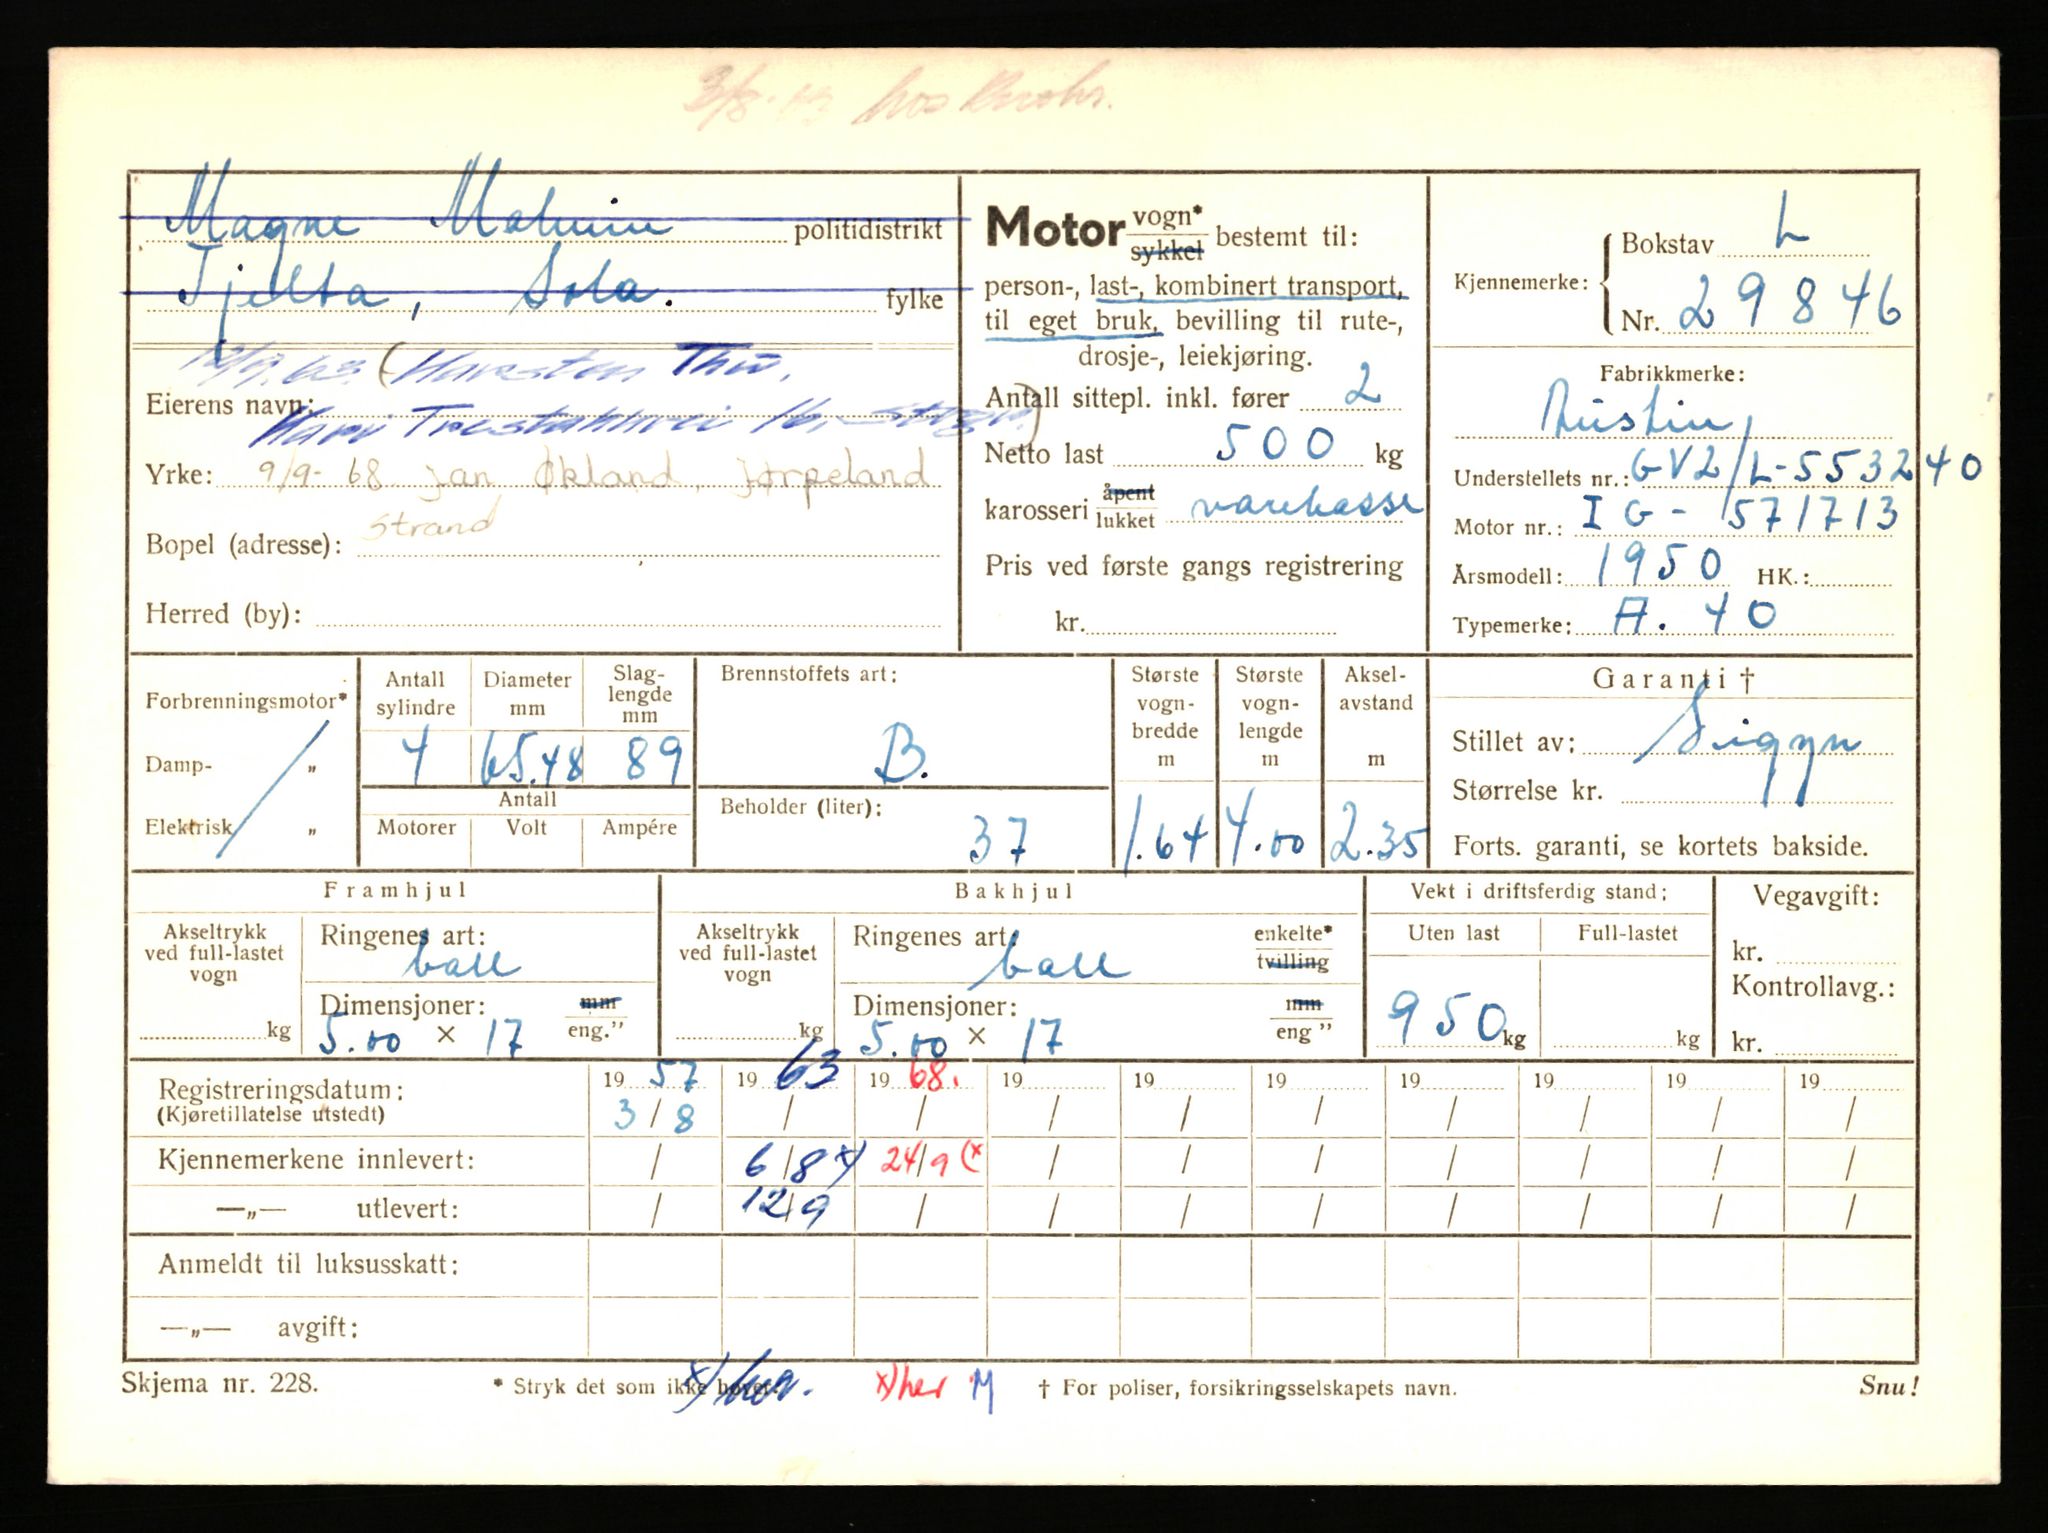 3/8-63 hos
Magne politidistrikt
Tjelta, Sola. fylke
12/9.63. (Karsten Thu.
Eierens navn:
Kari Trestakkvei 16, Stvgr.)
Yrke: 9/9-68 Jan Økland, Jørpeland
Strand
Bopel (adresse):
Herred (by):
Motor vogn* sykkel bestemt til:
person-, last-, kombinert transport,
til eget bruk, bevilling til rute-,
drosje-, leiekjøring.
Antall sittepl. inkl. fører 2
Netto last 500 kg
karosseri åpent lukket varekasse
Pris ved første gangs registrering
kr.
Kjennemerke: Bokstav L
Nr. 29846
Fabrikkmerke:
Austin
Understellets nr.: GV2/L-553240
Motor nr.: IG-571713
Årsmodell: 1950 HK.:
Typemerke: A. 40
Forbrenningsmotor*
Damp- "
Elektrisk "
Antall sylindre 4
Diameter mm 65.48
Slaglengde mm 89
Antall
Motorer Volt Ampére
Brennstoffets art:
B.
Beholder (liter):
37
Største vognbredde m 1.64
Største vognlengde m 4.00
Akselavstand m 2.35
Garanti †
Stillet av: Sigyn
Størrelse kr.
Forts. garanti, se kortets bakside.
Framhjul
Akseltrykk ved full-lastet vogn kg
Ringenes art: ball
Dimensjoner: mm
5.00 × 17 eng."
Bakhjul
Akseltrykk ved full-lastet vogn kg
Ringenes art: ball enkelte* tvilling
Dimensjoner: mm
5.00 × 17 eng"
Vekt i driftsferdig stand:
Uten last Full-lastet
950 kg kg
Vegavgift:
kr.
Kontrollavg.:
kr.
Registreringsdatum: 19 57 19 63 19 68. 19 19 19 19 19 19 19
(Kjøretillatelse utstedt) 3/8 / / / / / / / / /
Kjennemerkene innlevert: / 6/8 x) 24/9 (x / / / / / / /
—„— utlevert: / 12/9 / / / / / / / /
Anmeldt til luksusskatt:
—„— avgift:
Skjema nr. 228. * Stryk det som ikke høver. x) her. x) her M † For poliser, forsikringsselskapets navn. Snu!